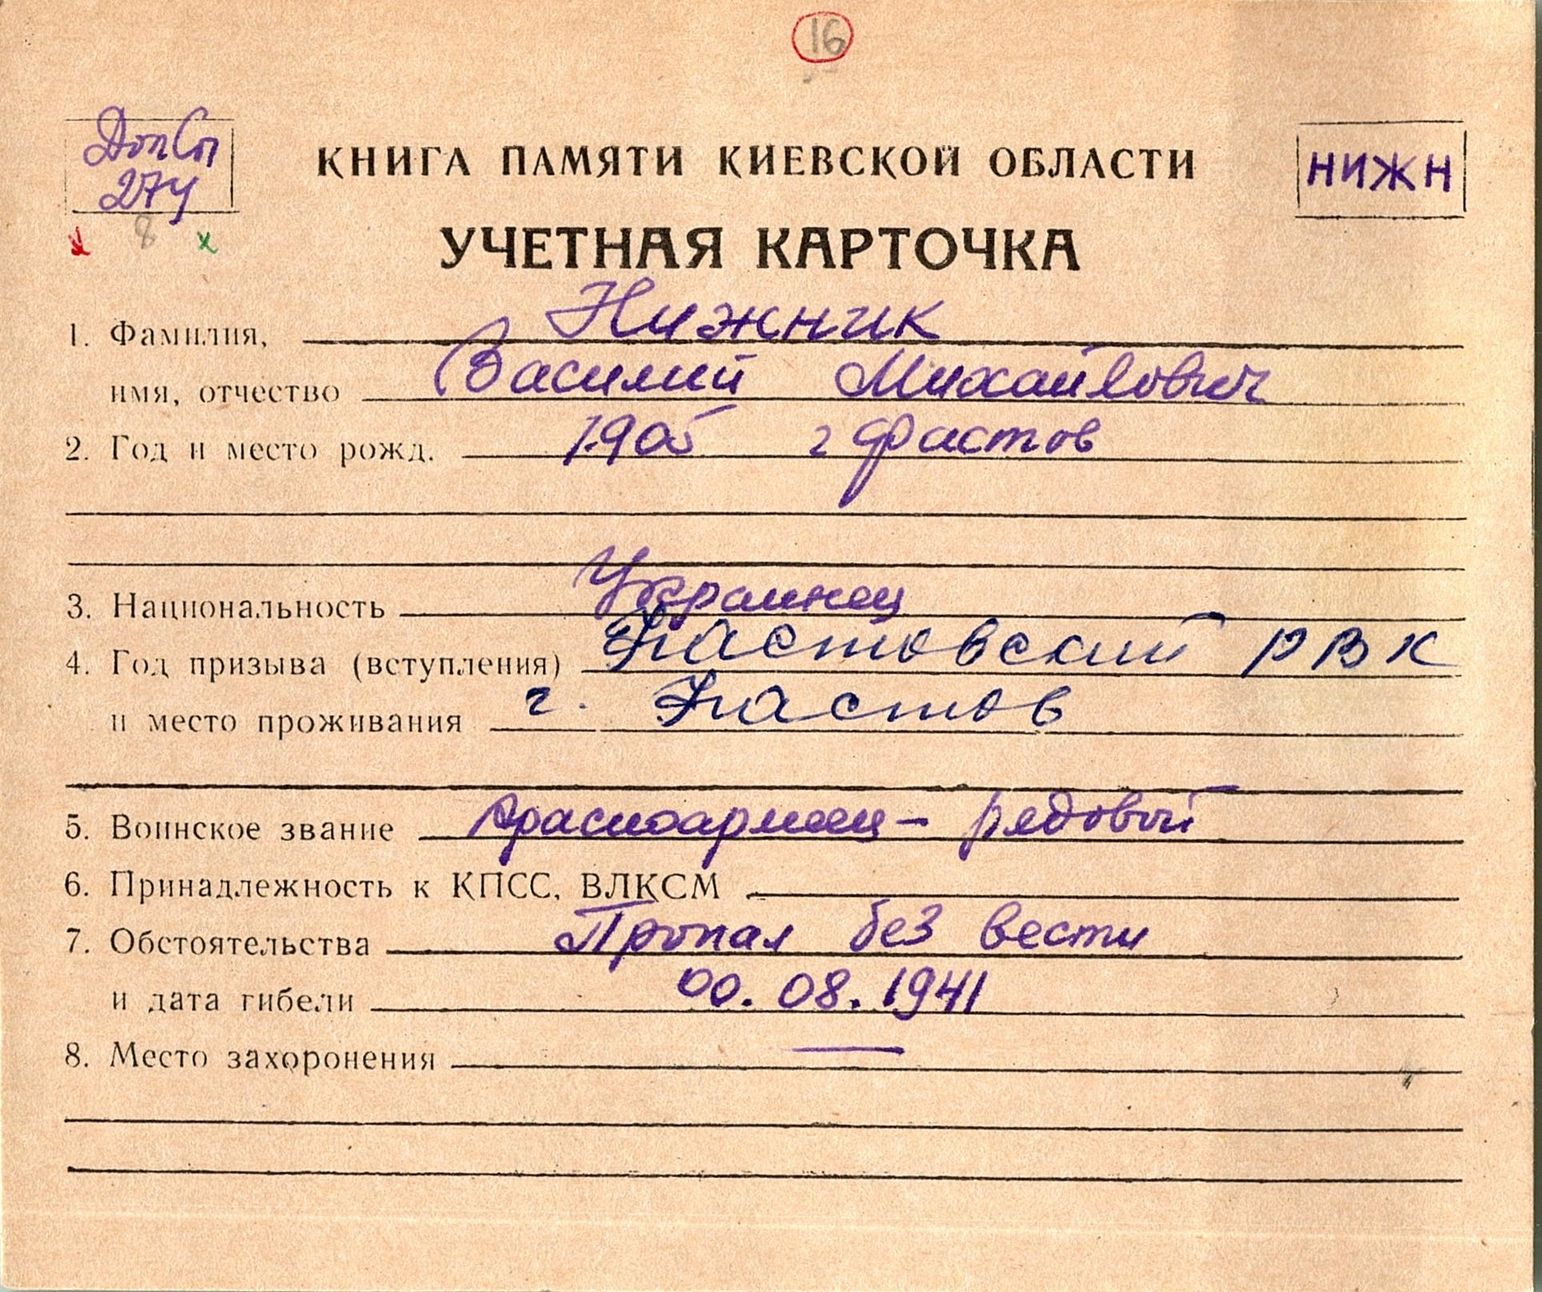 16
КНИГА ПАМЯТИ КИЕВСКОЙ ОБЛАСТИ
НИЖН
УЧЕТНАЯ КАРТОЧКА
1. Фамилия, Нижник
имя, отчество Василий Михайлович
2. Год и место рожд. 1905 г Фастов
3. Национальность Украинец
4. Год призыва (вступления) Фастовский РВК
и место проживания г. Фастов
5. Воинское звание красноармеец - рядовой
6. Принадлежность к КПСС, ВЛКСМ
7. Обстоятельства Пропал без вести
и дата гибели 00.08.1941
8. Место захоронения —